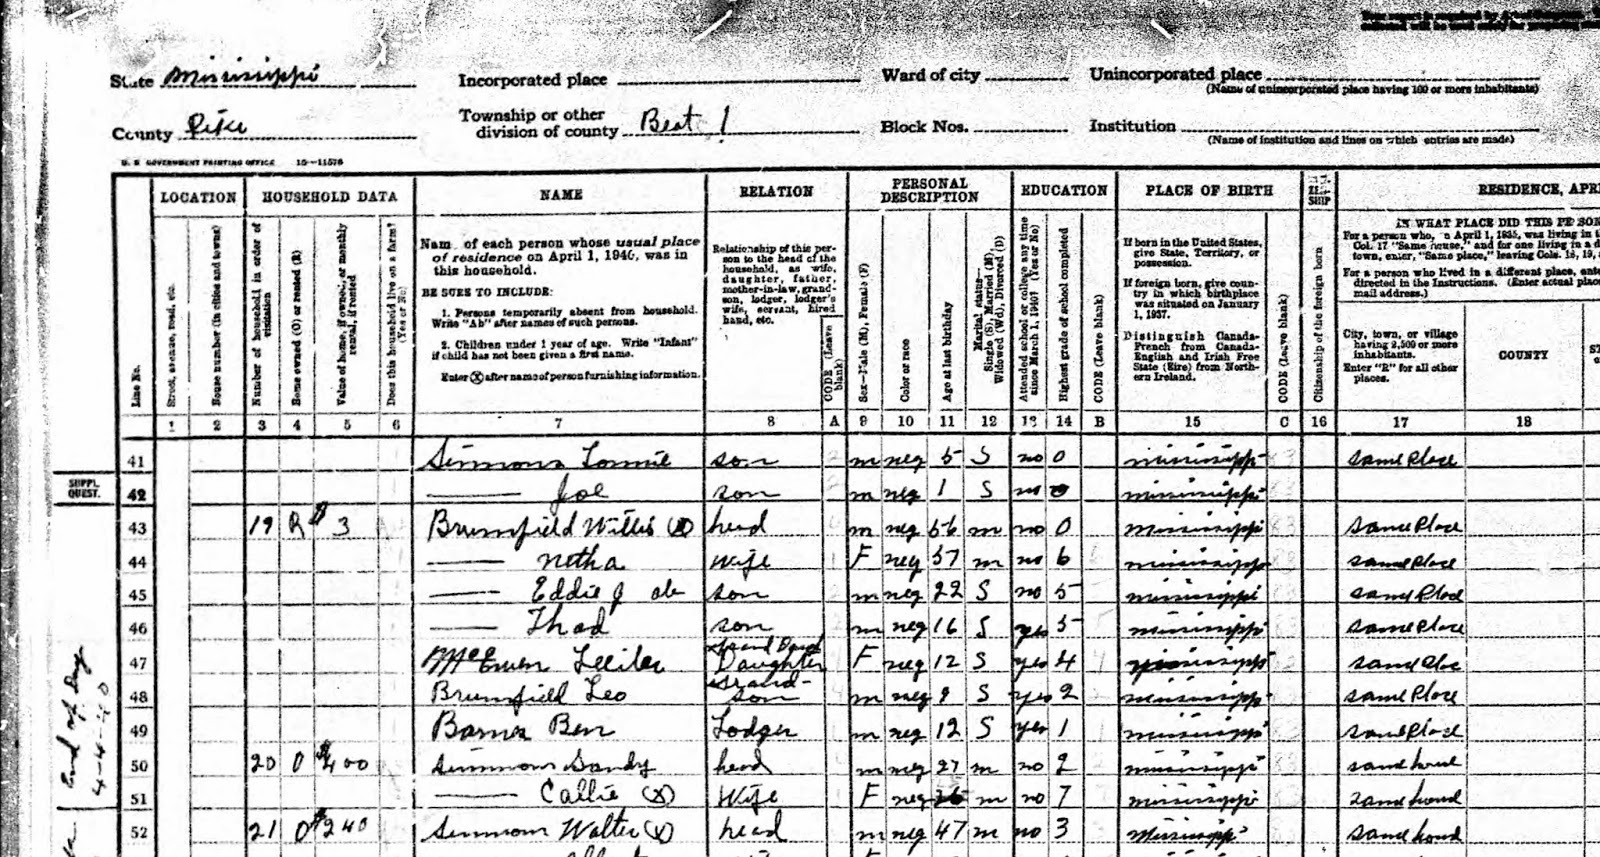 State Mississippi Incorporated place Ward of city Unincorporated place
(Name of unincorporated place having 100 or more inhabitants)
County Pike Township or other division of county Beat 1 Block Nos. Institution
(Name of institution and lines on which entries are made)
U. S. GOVERNMENT PRINTING OFFICE 16—11576
LOCATION HOUSEHOLD DATA NAME RELATION PERSONAL DESCRIPTION EDUCATION PLACE OF BIRTH RESIDENCE, APR
Line No.
Street, avenue, road, etc.
House number (in cities and towns)
Number of household in order of visitation
Home owned (O) or rented (R)
Value of home, if owned, or monthly rental, if rented
Does this household live on a farm? (Yes or No)
Nam of each person whose usual place of residence on April 1, 1940, was in this household.
BE SURE TO INCLUDE:
1. Persons temporarily absent from household. Write "Ab" after names of such persons.
2. Children under 1 year of age. Write "Infant" if child has not been given a first name.
Enter Ⓧ after name of person furnishing information.
Relationship of this person to the head of the household, as wife, daughter, father, mother-in-law, grandson, lodger, lodger's wife, servant, hired hand, etc.
CODE (Leave blank)
Sex—Male (M), Female (F)
Color or race
Age at last birthday
Marital status—Single (S), Married (M), Widowed (Wd), Divorced (D)
Attended school or college any time since March 1, 1940? (Yes or No)
Highest grade of school completed
CODE (Leave blank)
If born in the United States, give State, Territory, or possession.
If foreign born, give country in which birthplace was situated on January 1, 1937.
Distinguish Canada-French from Canada-English and Irish Free State (Eire) from Northern Ireland.
CODE (Leave blank)
Citizenship of the foreign born
IN WHAT PLACE DID THIS PERSON
For a person who, on April 1, 1935, was living in t
Col. 17 "Same house," and for one living in a d
town, enter, "Same place," leaving Cols. 18, 19,
For a person who lived in a different place, ente
directed in the Instructions. (Enter actual place
mail address.)
City, town, or village having 2,500 or more inhabitants.
Enter "R" for all other places.
COUNTY
1 2 3 4 5 6 7 8 A 9 10 11 12 13 14 B 15 C 16 17 18
41 Simmons Lonnie son m neg 5 S no 0 mississippi same Place
SUPPL. QUEST.
42 —— Joe son m neg 1 S no 0 mississippi
43 19 R $3 Brumfield Willis Ⓧ head m neg 56 m no 0 mississippi same Place
44 —— netha wife F neg 57 m no 6 mississippi same Place
45 —— Eddie J ab son m neg 22 S no 5 mississippi same Place
46 —— Thad son m neg 16 S yes 5 mississippi same Place
47 McEwen Daughter F neg 12 S yes 4 mississippi same Place
48 Brumfield Leo Grand-son m neg 9 S yes 2 mississippi same Place
49 Barnes Ben Lodger m neg 12 S yes 1 mississippi same Place
50 20 O $400 Simmons Sandy head m neg 27 m no 2 mississippi same house
51 —— Callie Ⓧ wife F neg m no 7 mississippi same house
52 21 O $240 Simmons Walter Ⓧ head m neg 47 m no 3 Mississippi same house
End of Day
4-4-40